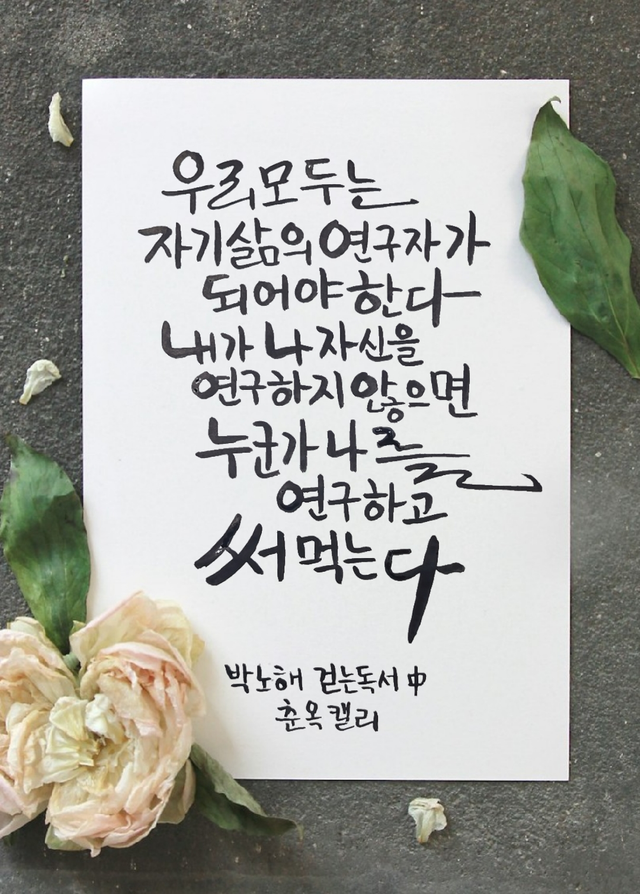 우리 모두는
자기 삶의 연구자가
되어야 한다
내가 나 자신을
연구하지 않으면
누군가 나를
연구하고
써먹는다
박노해 걷는독서 中
춘옥캘리